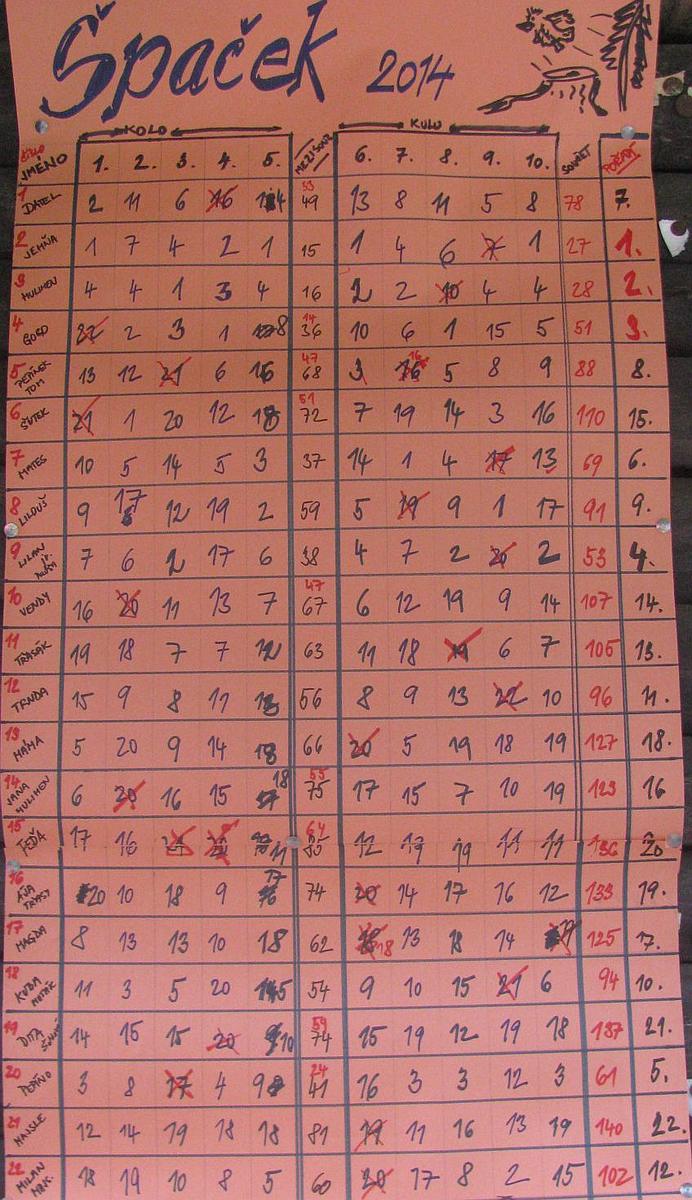 Špaček 2014
KOLO KOLO
ČÍSLO JMÉNO 1. 2. 3. 4. 5. MEZISOUČ. 6. 7. 8. 9. 10. SOUČET POŘADÍ
1 DATEL 2 11 6 16 4 53 49 13 8 11 5 8 78 7.
2 JEHŇA 1 7 4 2 1 15 1 4 6 7 1 27 1.
3 HULIHEN 4 4 1 3 4 16 2 2 10 4 4 28 2.
4 BORD 22 2 3 1 8 14 36 10 6 1 15 5 51 3.
5 PEPÍNEK TOM 13 12 21 6 16 47 68 3 16 5 8 9 88 8.
6 ŠUTEK 21 1 20 12 18 51 72 7 19 14 3 16 110 15.
7 MATES 10 5 14 5 3 37 14 1 4 17 13 69 6.
8 LILOUŠ 9 17 12 19 2 59 5 19 9 1 17 91 9.
9 LILAN 7 6 2 17 6 38 4 7 2 20 2 53 4.
10 VENDY 16 20 11 13 7 47 67 6 12 19 9 14 107 14.
11 TŘASÁK 19 18 7 7 12 63 11 18 19 6 7 105 13.
12 TRNDA 15 9 8 11 13 56 8 9 13 22 10 96 11.
13 HÁMA 5 20 9 14 18 66 20 5 19 18 19 127 18.
14 JANA HULIHEN 6 20 16 15 18 55 75 17 15 7 10 19 123 16
15 PÉĎA 17 16 21 20 11 64 85 12 17 19 11 11 136 20.
16 AŽA TŘASY 20 10 18 9 17 74 20 14 17 16 12 133 19.
17 MAGDA 8 13 13 10 18 62 18 13 18 14 125 17.
18 KUBA 11 3 5 20 15 54 9 10 15 21 6 94 10.
19 DITA 14 15 15 20 10 59 74 15 19 12 19 18 137 21.
20 PEPÍNO 3 8 17 4 9 24 41 16 3 3 12 3 61 5.
21 HAJSLE 12 14 19 18 18 81 19 11 16 13 19 140 22.
22 MILAN 18 19 10 8 5 60 20 17 8 2 15 102 12.